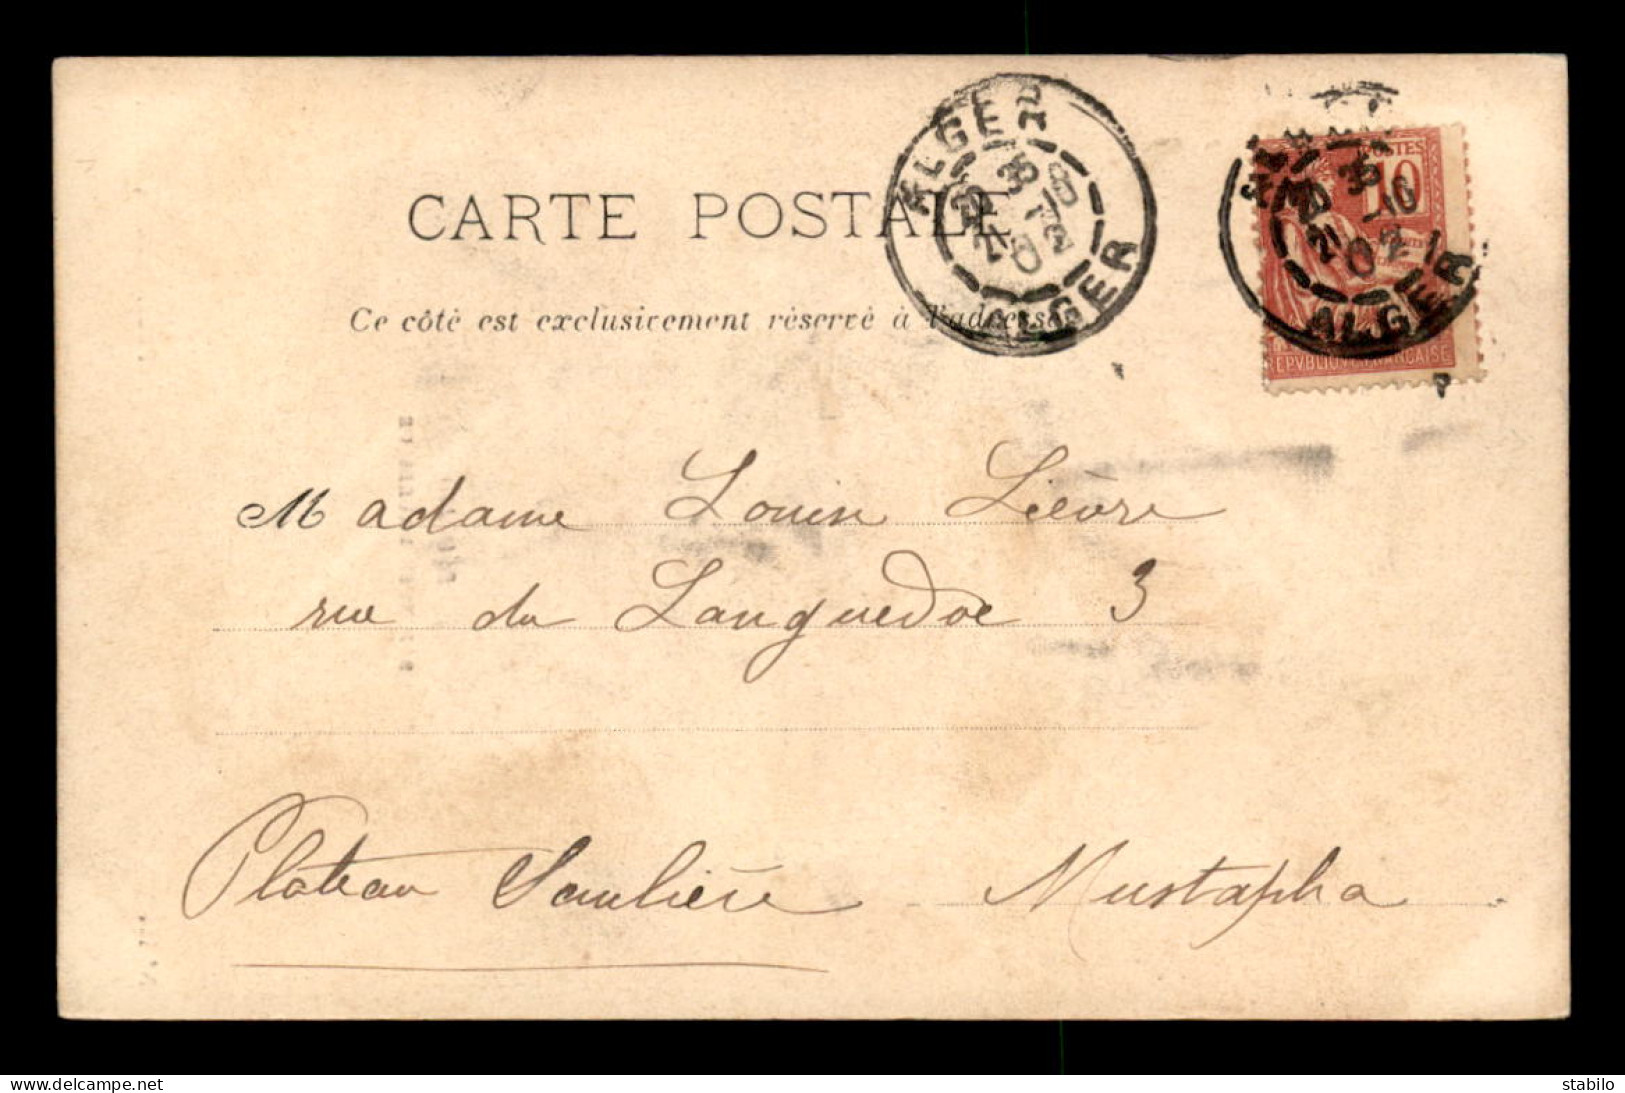 CARTE POSTALE
Ce côté est exclusivement réservé à l'adresse
ALGER
ALGER
POSTES
10
REPVBLIQUE FRANÇAISE
ALGER
02
Madame Louis Lièvre
rue du Languedoc 3
Plateau Saulière Mustapha
www.delcampe.net
stabilo